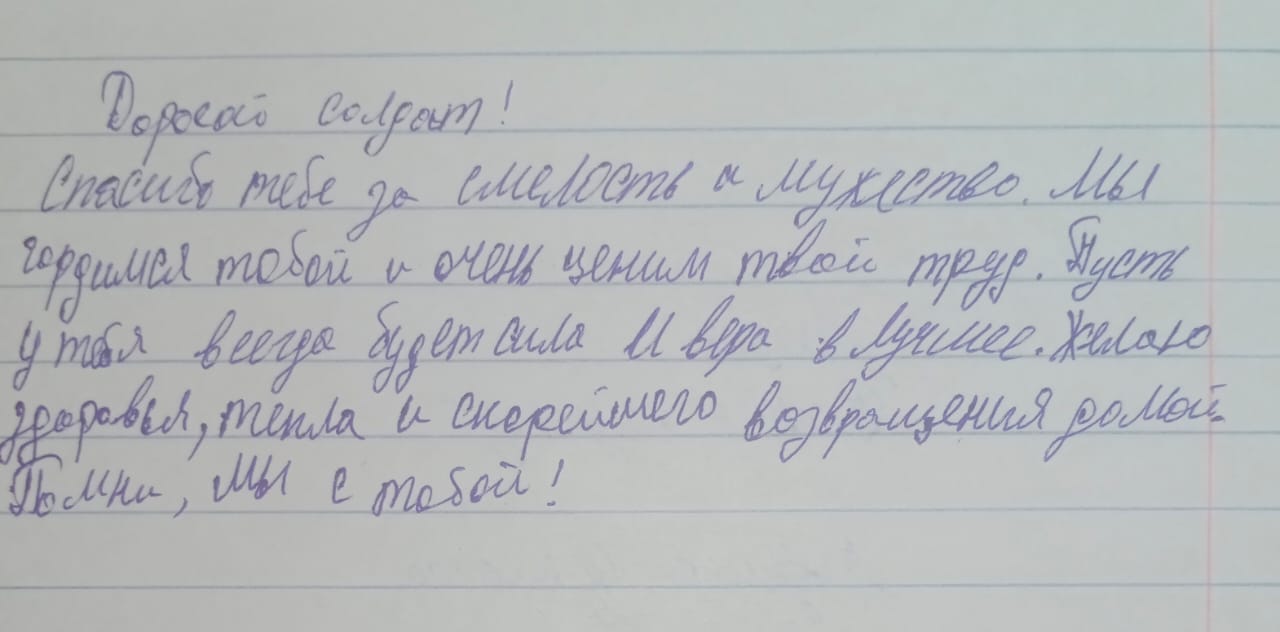 Дорогой солдат!
Спасибо тебе за смелость и мужество. Мы
гордимся тобой и очень ценим твой труд. Пусть
у тебя всегда будет сила и вера в лучшее. Желаю
здоровья, тепла и скорейшего возвращения домой.
Помни, мы с тобой!